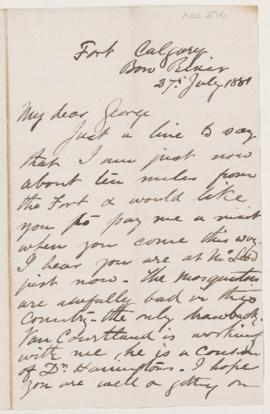 Fort Calgary
Bow River
27th July 1881
My dear George
Just a line to say
that I am just now
about ten miles from
the Fort & would like
you to pay me a visit
when you come this way.
I hear you are at the
just now. The mosquitoes
are awfully bad in this
country - the only drawback.
Van Courtland is working
with me, he is a cousin
of Dr. Harrington's. I hope
you are well & getting on